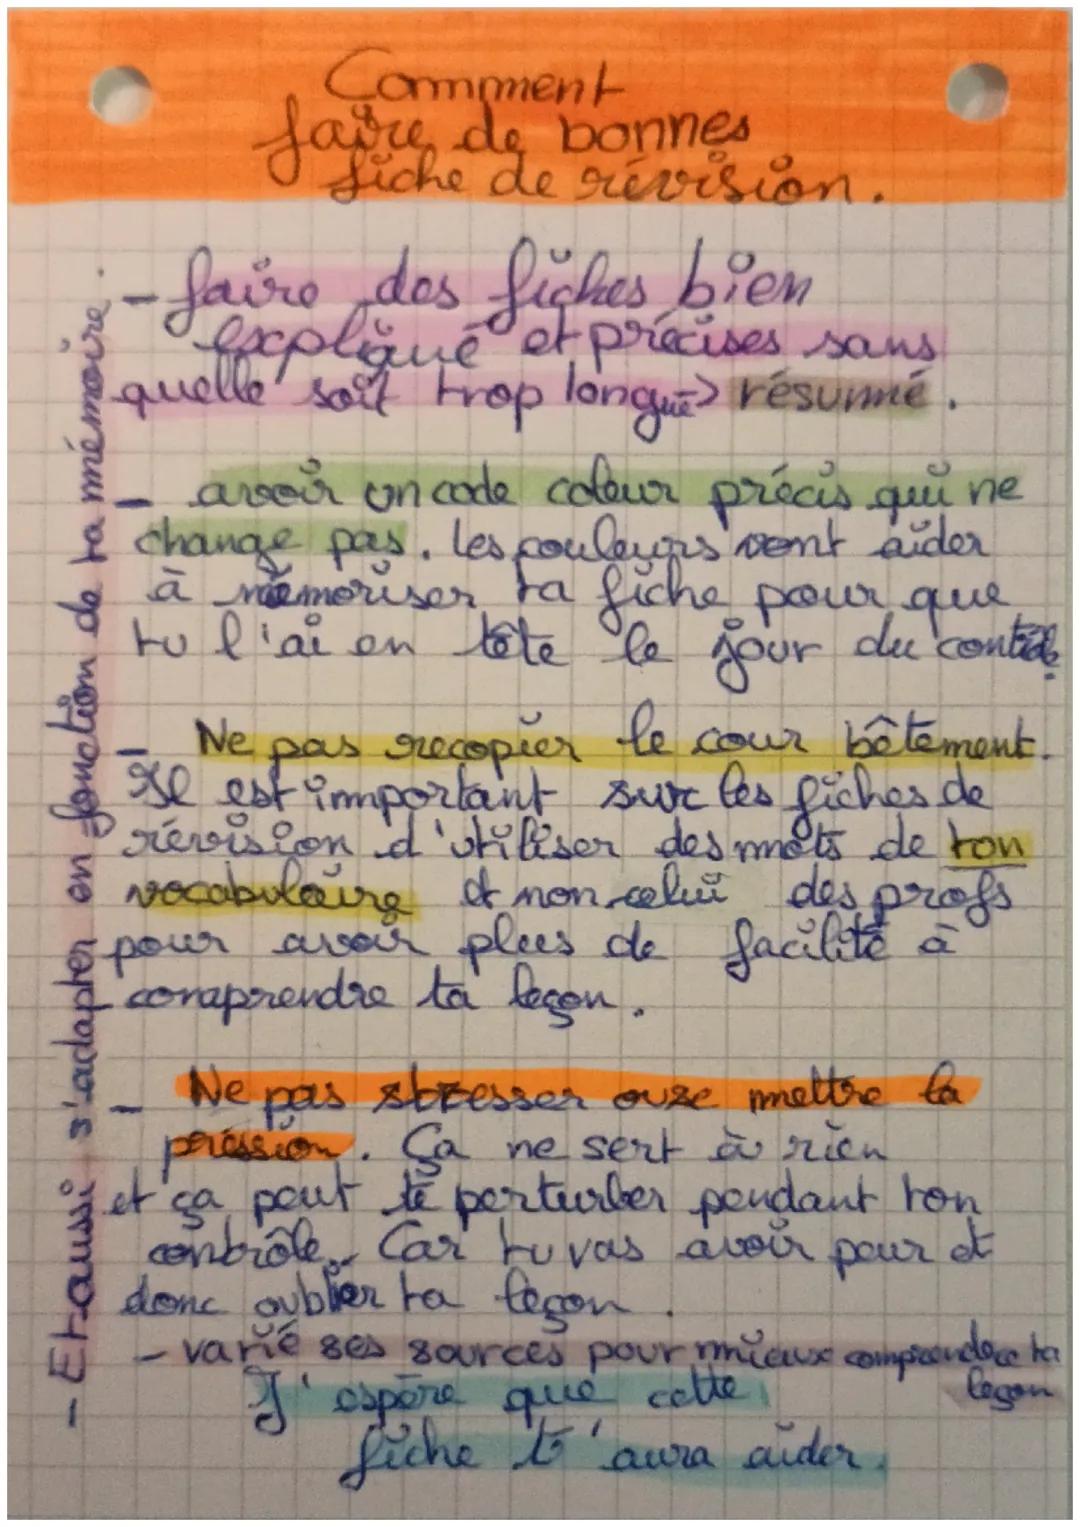 Commment
faire de bonnes
fiche de révision.
- faire des fiches bien
expliqué et précises sans
quelle soit trop longue -> résummé.
- avoir un code couleur précis qui ne
change pas. les couleurs vont aider
à mémoriser ta fiche pour que
tu l'ai en tête le jour du contrôle.
- Ne pas recopier le cour bêtement.
Il est important sur les fiches de
révision d'utiliser des mots de ton
vocabulaire et non celui des profs
pour avoir plus de facilité à
comprendre ta leçon.
- Ne pas stresser ou se mettre la
pression. Ça ne sert à rien
et ça peut te perturber pendant ton
contrôle. Car tu vas avoir peur et
donc oublier ta leçon.
- varié ses sources pour mieux comprendre ta
leçon
J'espère que cette
fiche t'aura aider.
- Et aussi s'adapter en fonction de ta mémoire.